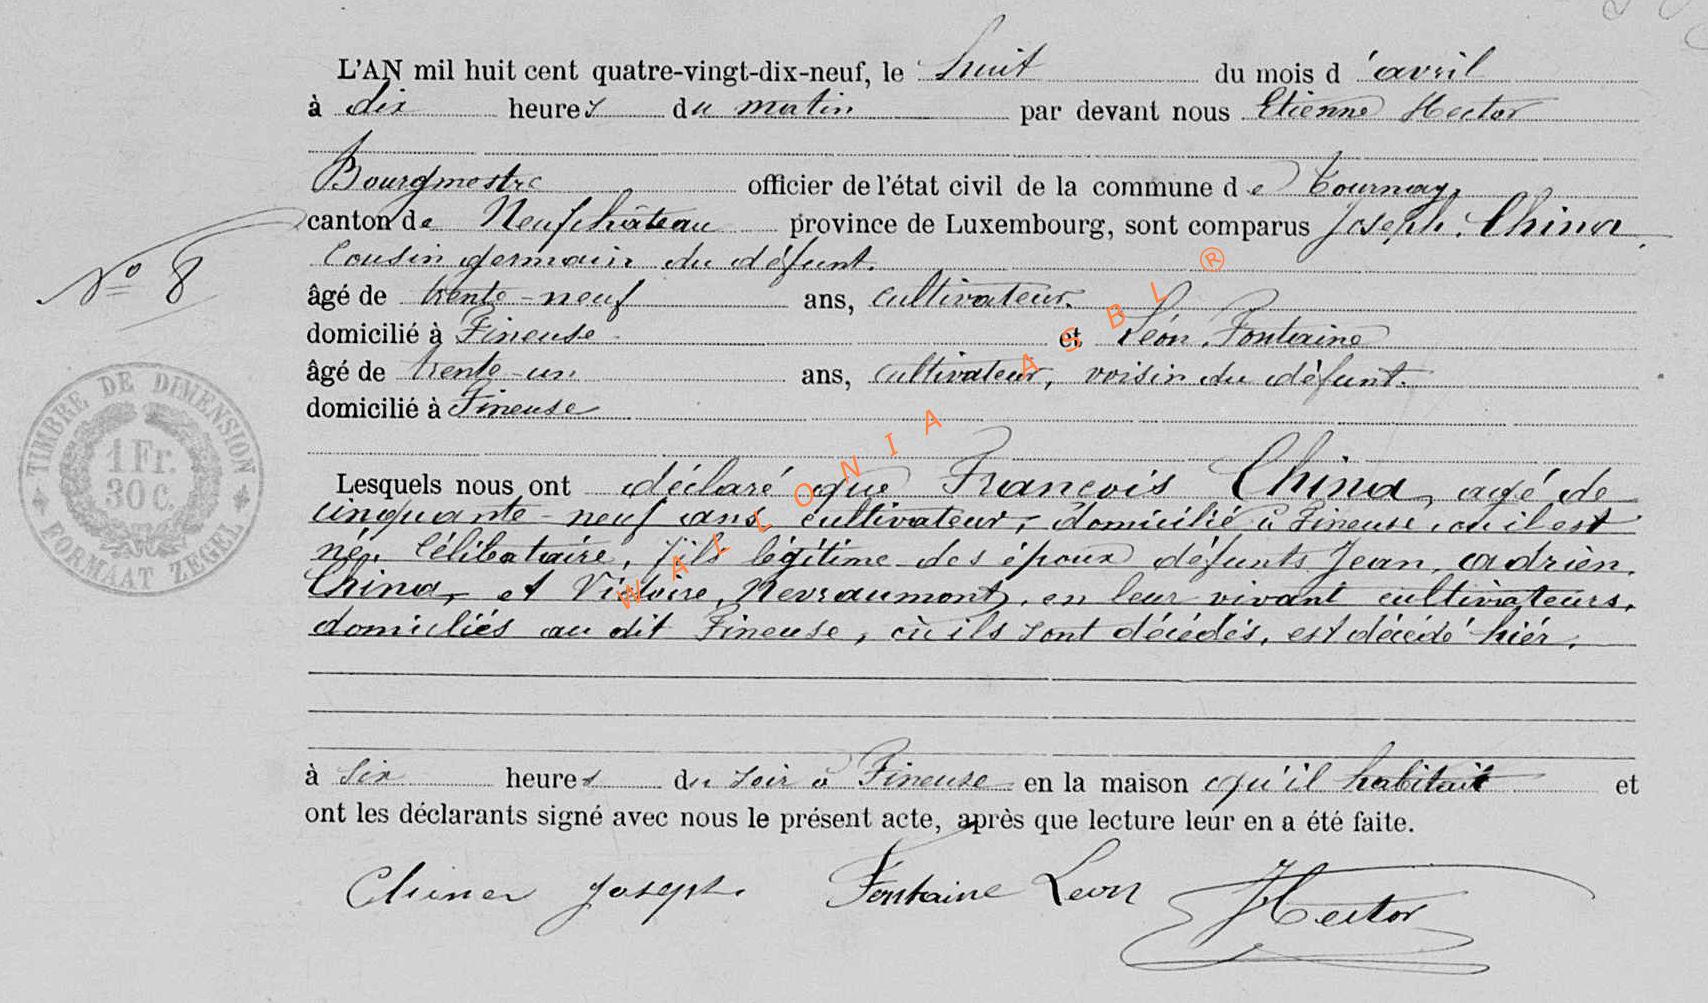 L'AN mil huit cent quatre-vingt-dix-neuf, le huit du mois d'avril
à dix heures du matin par devant nous Etienne Hector
Bourgmestre officier de l'état civil de la commune de Tournay,
canton de Neufchâteau province de Luxembourg, sont comparus Joseph, China
Cousin germain du défunt.
N° 8
âgé de trente-neuf ans, cultivateur.
domicilié à Fineuse et Léon, Fontaine
âgé de trente-un ans, cultivateur, voisin du défunt.
domicilié à Fineuse
Lesquels nous ont déclaré que François China, agé de
cinquante-neuf ans, cultivateur, domicilié à Fineuse, où il est
né, Célibataire, fils légitime des époux défunts Jean, Adrien,
China, et Victoire, Nevraumont, en leur vivant cultivateurs,
domiciliés au dit Fineuse, où ils sont décédés, est décédé hiér,
à six heures du soir à Fineuse en la maison qu'il habitait et
ont les déclarants signé avec nous le présent acte, après que lecture leur en a été faite.
China Joseph. Fontaine Leon Hector
TIMBRE DE DIMENSION
1 Fr.
30 C.
FORMAAT ZEGEL
WALLONIA ASBL ®